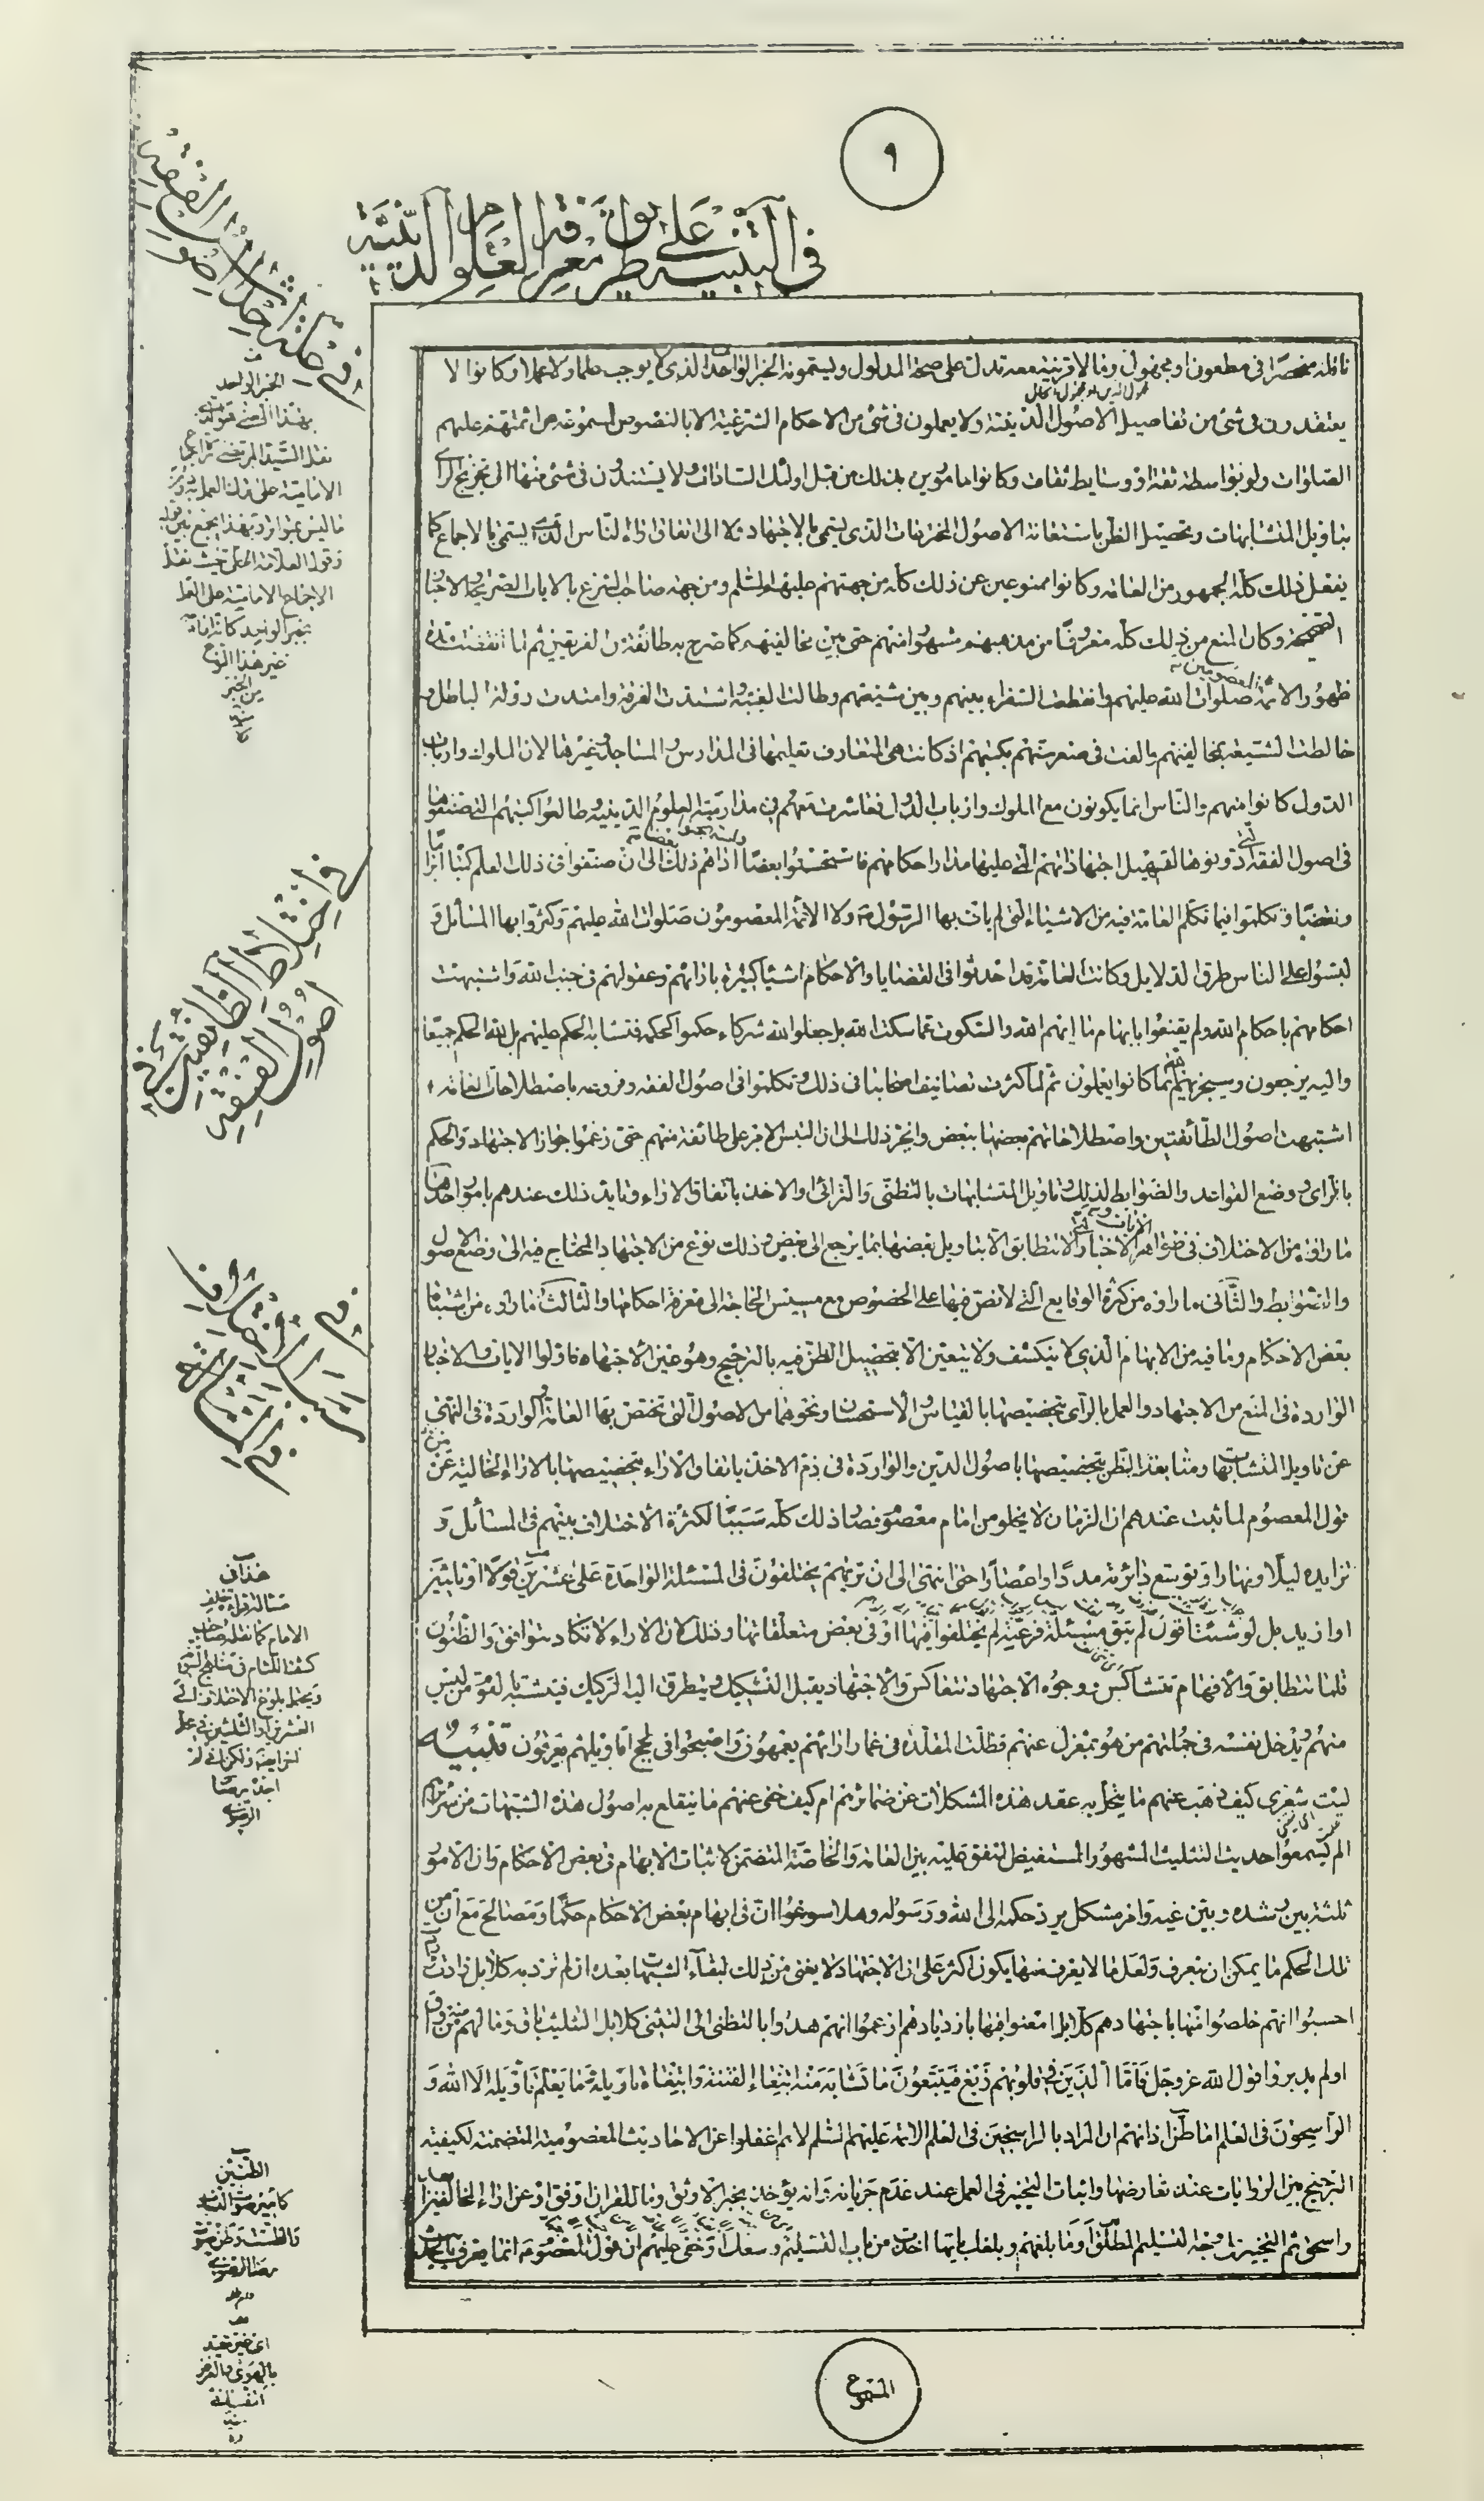 ٩
في التنبيه على طريق معرفة العلوم الدينية
ناقله منحصرا في مطعون او مجهول وما لا قرينة معه تدل على صحة المدلول ويسمونه الخبر الواحد الذي لا يوجب علما ولا عملا وكانوا لا
يعتقدون في شئ من تفاصيل الاصول الدينية ولا يعملون في شئ من الاحكام الشرعية الا بالنصوص المسموعة من ائمتهم عليهم
الصلوات ولو بواسطة ثقة او وسايط ثقات وكانوا مامورين بذلك من قبل اولئك السادات ولا يستندون في شئ منها الى تخريج الراى
بتاويل المتشابهات وتحصيل الظن باستعانة الاصول المخترعات الذي يسمى بالاجتهاد ولا الى اتفاق اراء الناس الذى يسمى بالاجماع كما
يفعل ذلك كله الجمهور من العامة وكانوا ممنوعين عن ذلك كله من جهتهم عليهم السلم ومن جهة صاحب الشرع بالايات الصريحة والاخبار
الصحيحة وكان المنع من ذلك كله معروفا من مذهبهم مشهورا منهم حتى بين مخالفيهم كما صرح به طائفة من الفريقين ثم لما انقضت مدة
ظهور الائمة المعصومين صلوات الله عليهم وانقطعت السفراء بينهم وبين شيعتهم وطالت الغيبة واشتدت الفرقة وامتدت دولة الباطل و
خالطت الشيعة بمخالفيهم والفت في صغر سنهم بكتبهم اذ كانت هي المتعارف تعليمها في المدارس والمساجد وغيرها لان الملوك وارباب
الدول كانوا منهم والناس انما يكونون مع الملوك وارباب الدول فعاشرت معهم في مدارسة العلوم الدينية وطالعوا كتبهم التي صنفوها
في اصول الفقه التي دونوها لتسهيل اجتهاداتهم التي عليها مدار احكامهم فاستحسنوا بعضا واستهجنوا بعضا اداهم ذلك الى ان صنفوا في ذلك العلم كتبا ابراما
ونقضا وتكلموا فيما تكلم العامة فيه من الاشياء التي لم يات بها الرسول ص ولا الائمة المعصومون صلوات الله عليهم وكثروا بها المسائل و
لبسوا على الناس طرق الدلايل وكانت العامة قد احدثوا في القضايا والاحكام اشياء كثيرة بارائهم وعقولهم في جنب الله واشتبهت
احكامهم باحكام الله ولم يقنعوا بابهام ما ابهم الله والسكوت عما سكت الله بل جعلوا لله شركاء حكموا كحكمه فتشابه الحكم عليهم بل لله الحكم جميعا
واليه يرجعون وسيجزيهم الله بما كانوا يعملون ثم لما كثرت تصانيف اصحابنا في ذلك وتكلموا في اصول الفقه وفروعه باصطلاحات العامة
اشتبهت اصول الطائفتين واصطلاحاتهم بعضها ببعض وانجر ذلك الى ان التبس الامر على طائفة منهم حتى زعموا جواز الاجتهاد والحكم
بالراى ووضع القواعد والضوابط لذلك وتاويل المتشابهات بالتظني والترائي والاخذ باتفاق الاراء وتايد ذلك عندهم بامور احدها
ما راوه من الاختلاف في ظواهر الايات والاخبار التي لا تتطابق الا بتاويل بعضها بما يرجع الى بعض وذلك نوع من الاجتهاد المحتاج فيه الى وضع الاصول
والضوابط والثاني ما راوه من كثرة الوقايع التي لا نص فيها على الخصوص مع مسيس الحاجة الى معرفة احكامها والثالث ما راوه من اشتباه
بعض الاحكام وما فيه من الابهام الذي لا ينكشف ولا يتعين الا بتحصيل الظن فيه بالترجيح وهو عين الاجتهاد فاولوا الايات والاخبار
الواردة في المنع من الاجتهاد والعمل بالراى بتخصيصها بالقياس والاستحسان ونحوهما من الاصول التي تختص بها العامة والواردة في النهي
عن تاويل المتشابهات ومتابعة الظن بتخصيصها باصول الدين والواردة في ذم الاخذ باتفاق الاراء بتخصيصها بالاراء الخالية عن
قول المعصوم لما ثبت عندهم ان الزمان لا يخلو من امام معصوم فصار ذلك كله سببا لكثرة الاختلاف بينهم في المسائل و
تزايده ليلا ونهارا وتوسع دائرته مددا واعصارا حتى انتهى الى ان تراهم يختلفون في المسئلة الواحدة على عشرين قولا او ثلثين
او ازيد بل لو شئت اقول لم تبق مسئلة فرعية لم يختلفوا فيها او في بعض متعلقاتها وذلك لان الاراء لا تكاد تتوافق والظنون
قلما تتطابق والافهام تتشاكس ووجوه الاجتهاد تتعاكس والاجتهاد يقبل التشكيك ويتطرق اليه الركيك فيتشبه بالقوم من ليس
منهم ويدخل نفسه في جملتهم من هو بمعزل عنهم فظلت المقلدة في غمار ارائهم يعمهون واصبحوا في لجج اقاويلهم يغرقون تنبيه
ليت شعري كيف ذهب عنهم ما ينحل به عقد هذه المشكلات عن ضمائرهم ام كيف خفي عنهم ما ينقلع به اصول هذه الشبهات من سرائرهم
الم يسمعوا حديث التثليث المشهور المستفيض المتفق عليه بين العامة والخاصة المتضمن لاثبات الابهام في بعض الاحكام وان الامور
ثلثة بين رشده وبين غيه وامر مشكل يرد حكمه الى الله ورسوله وهلا سوغوا ان في ابهام بعض الاحكام حكما ومصالح مع ان من
تلك الحكم ما يمكن ان يتعرف ولعل ما لا يعرف منها يكون اكثر على ان الاجتهاد لا يغني من ذلك لبقاء الشبهات بعده ان لم تزد به كلا بل زادت
احسبوا انهم خلصوا منها باجتهادهم كلا بل امعنوا فيها بازديادهم ازعموا انهم هدوا بالتظني الى التثني كلا بل التثليث باق وما لهم منه من واق
اولم يدبروا قول الله عز وجل فاما الذين في قلوبهم زيغ فيتبعون ما تشابه منه ابتغاء الفتنة وابتغاء تاويله وما يعلم تاويله الا الله و
الراسخون في العلم اما طن اذانهم ان المراد بالراسخين في العلم الائمة عليهم السلم لا هم اغفلوا عن الاحاديث المعصومية المتضمنة لكيفية
الترجيح بين الروايات عند تعارضها واثبات التخيير في العمل عند عدم جريانه وانه يؤخذ بخبر الاوثق وما للقران اوفق او عن اراء المخالفين
واسحق ثم التخيير على وجه التسليم المطلق او ما بلغهم وبلغك بايهما اخذت من باب التسليم وسعك او خفي عليهم ان قول المعصوم انما يعرف بالحديث
المسموع
في حكمة احداث اصول الفقه
الخبر الواحد
بهذا المعنى
نقل السيد المرتضى
الامامية على ترك العمل به
وقول العلامة الحلي حيث نقل
الاجماع الامامية على العمل
بخبر الواحد
غير هذا النوع
من الخبر
منه
في اختلاط الطايفتين في
اصول الفقه
في سبب الاختلاف
في المسائل
الامام كما نقله صاحب
كشف اللثام في
ويحتمل بلوغ الاختلاف الى
العشرين او الثلثين في
الطنين
كامير صوت الذباب
والطست وطن صوت